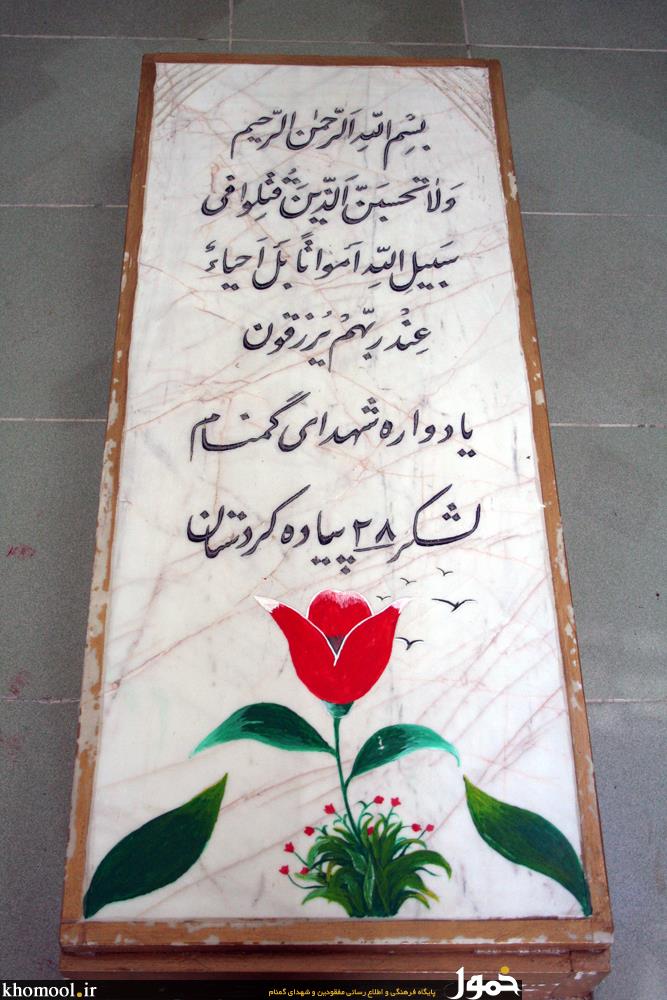 بِسْمِ اللّهِ اَلرَّحمٰنِ الرَّحیم
وَلاٰتحسبَنَّ اَلَّذینَ قُتِلِوا فی
سَبیلِ اللّهِ اَمواتًا بَل اَحیاءٌ
عِنْدَ رَبّهِمْ یُرزقون
یادواره شهدای گمنام
لشکر ۲۸ پیاده کردستان
khomool.ir
پایگاه فرهنگی و اطلاع رسانی مفقودین و شهدای گمنام
خمول